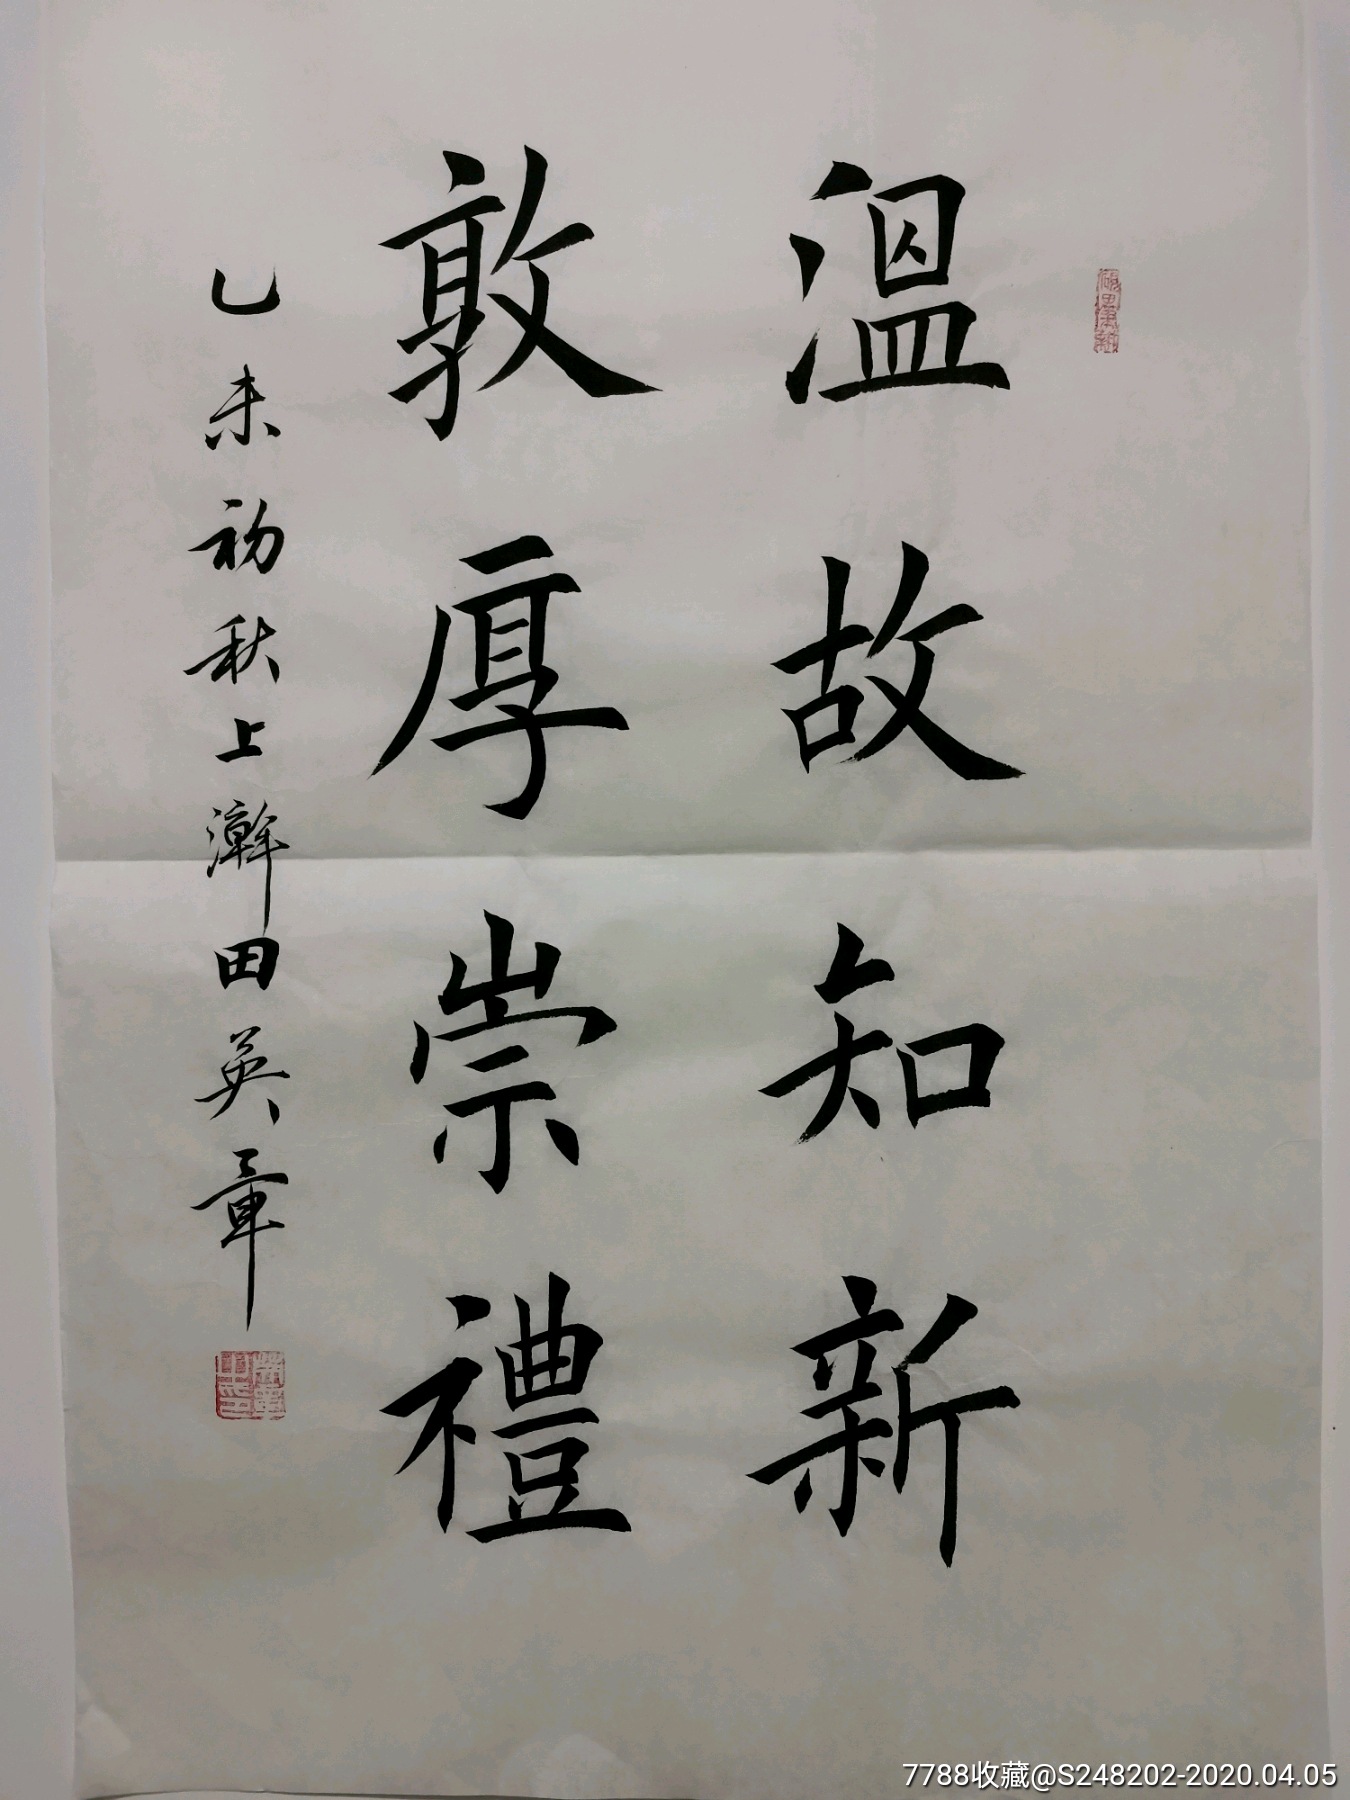 溫故知新
敦厚崇禮
乙未初秋上澣田英章
7788收藏@S248202-2020.04.05